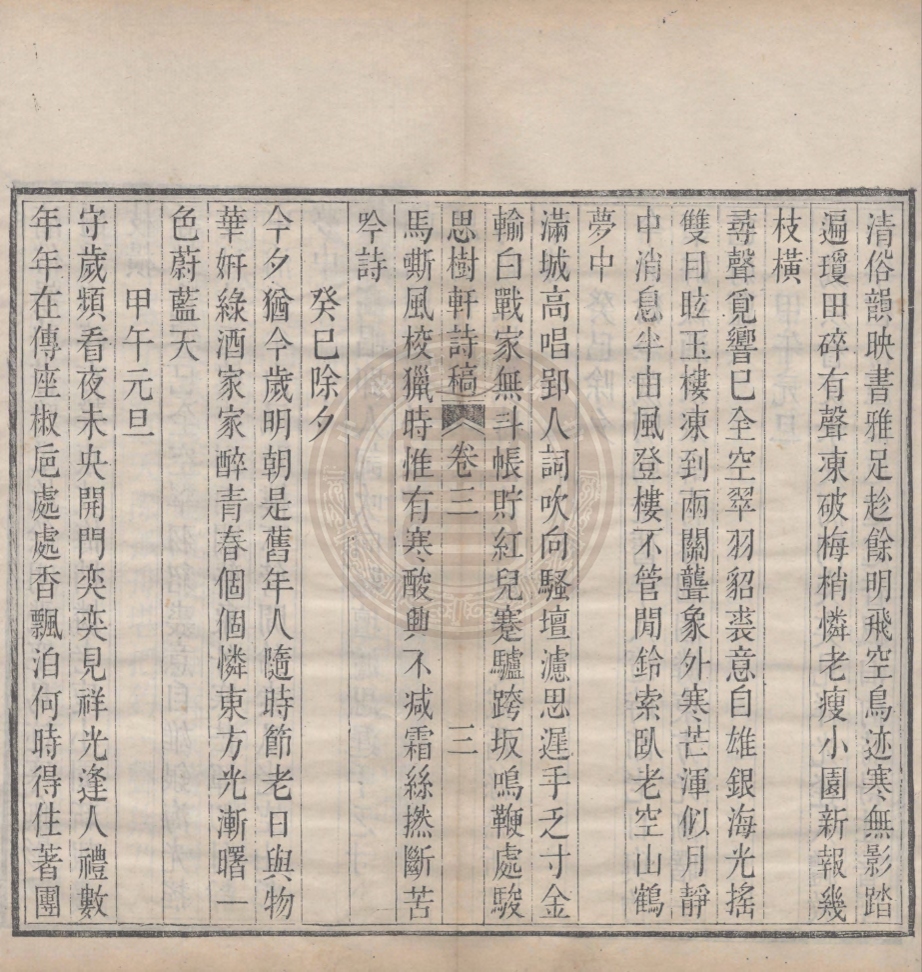 清俗韻映書雅足趁餘明飛空鳥迹寒無影踏
遍瓊田碎有聲凍破梅梢憐老瘦小園新報幾
枝橫
尋聲覓響已全空翠羽貂裘意自雄銀海光搖
雙目眩玉樓凍到兩關聾象外寒芒渾似月靜
中消息半由風登樓不管閒鈴索臥老空山鶴
夢中
滿城高唱郢人詞吹向騷壇濾思遲手乏寸金
輸白戰家無斗帳貯紅兒蹇驢跨坂鳴鞭處駿
思樹軒詩稿 卷三 三
馬嘶風校獵時惟有寒酸興不减霜絲撚斷苦
吟詩
癸巳除夕
今夕猶今歲明朝是舊年人隨時節老日與物
華姸綠酒家家醉青春個個憐東方光漸曙一
色蔚藍天
甲午元旦
守歲頻看夜未央開門奕奕見祥光逢人禮數
年年在傳座椒巵處處香飄泊何時得住著團